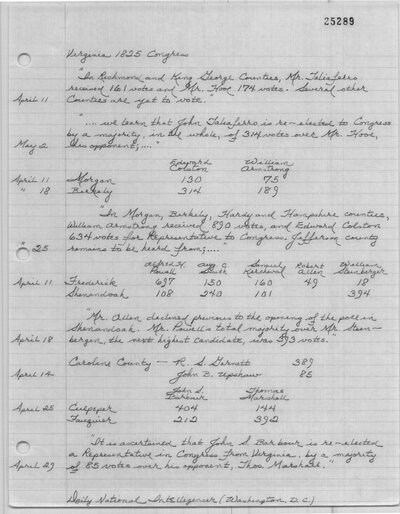 25289
Virginia 1825 Congress
"In Richmond and King George Counties, Mr. Taliaferro
received 161 votes and Mr. Hooe 174 votes. Several other
April 11 Counties are yet to vote."
"... we learn that John Taliaferro is re-elected to Congress
by a majority, in the whole, of 314 votes over Mr. Hooe,
May 2 his opponent;...."
Edward William
Colston Armstrong
April 11 Morgan 130 75
" 18 Berkely 314 189
"In Morgan, Berkely, Hardy and Hampshire counties,
William Armstrong received 890 votes, and Edward Colston
634 votes for Representative to Congress, Jefferson county
" 25 remains to be heard from;...."
Alfred H. Aug. C. Samuel Robert William
Powell Smith Kercheval Allen Steenbergen
April 11 Frederick 697 150 160 49 18
Shenandoah 108 240 101 394
"Mr. Allen declined previous to the opening of the poll in
Shenandoah. Mr. Powell's total majority over Mr. Steen-
April 18 bergen, the next highest candidate, was 393 votes.
Caroline County - R. S. Garnett 389
April 14 John B. Upshaw 85
John S. Thomas
Barbour Marshall
April 25 Culpeper 404 144
Fauquier 212 392
"It is ascertained that John S. Barbour is re-elected
a Representative in Congress from Virginia, by a majority
April 29 of 85 votes over his opponent, Thos. Marshall."
Daily National Intelligencer (Washington, D.C.)